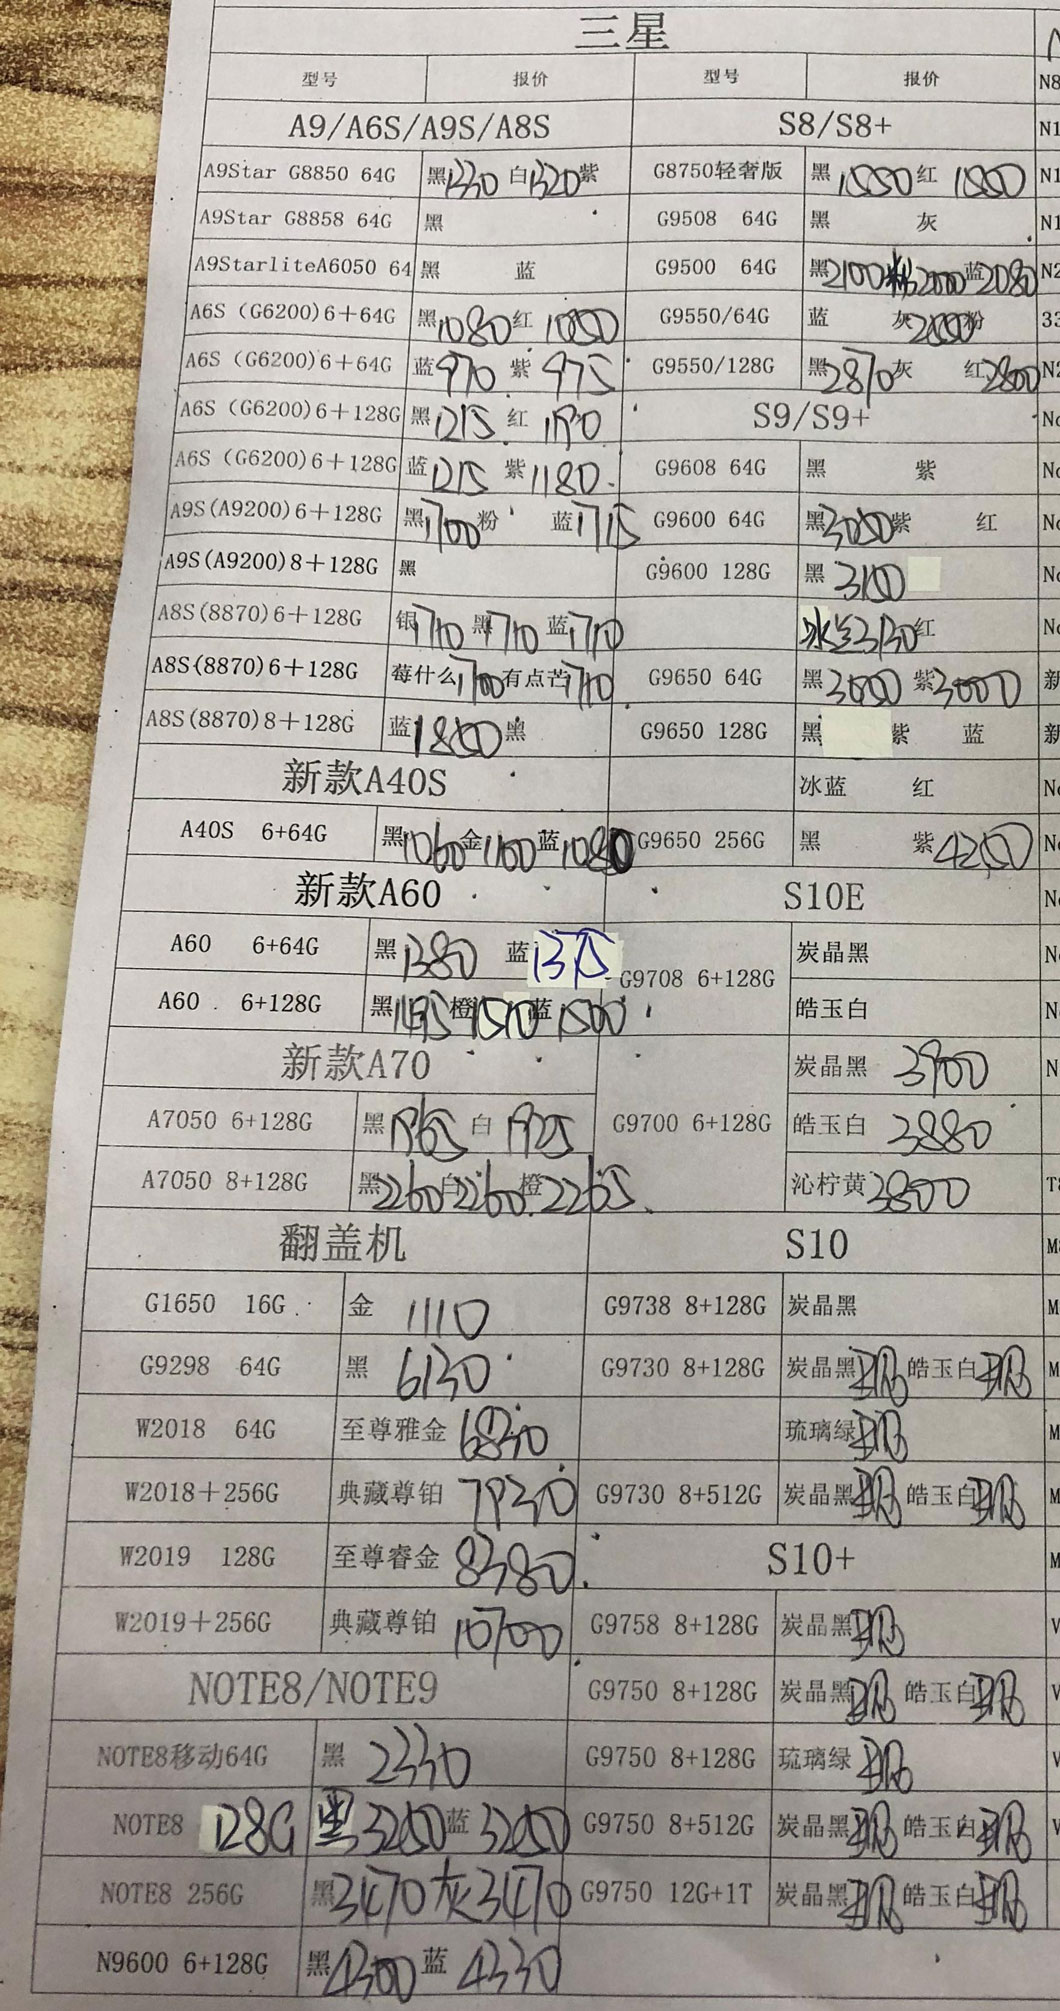 三星
型号 报价 型号 报价 N8
A9/A6S/A9S/A8S S8/S8+ N1
A9Star G8850 64G 黑1330 白1320紫 G8750轻奢版 黑1550红 1550 N1
A9Star G8858 64G 黑 G9508 64G 黑 灰 N1
A9StarliteA6050 64 黑 蓝 G9500 64G 黑2100粉2000蓝2080 N2
A6S (G6200)6+64G 黑1080红 1050 G9550/64G 蓝 灰 粉 33
A6S (G6200)6+64G 蓝970 紫 975 G9550/128G 黑2870灰 红2800 N2
A6S (G6200)6+128G 黑1215 红 1190 S9/S9+ No
A6S (G6200)6+128G 蓝1215 紫1180 G9608 64G 黑 紫 No
A9S(A9200)6+128G 黑1700粉 蓝1715 G9600 64G 黑3050紫 红 No
A9S(A9200)8+128G 黑 G9600 128G 黑 3100 No
A8S(8870)6+128G 银1710 黑1710 蓝1710 冰兰3130红 No
A8S(8870)6+128G 莓什么1700有点苦1710 G9650 64G 黑 紫 新
A8S(8870)8+128G 蓝 黑 G9650 128G 黑 紫 蓝 新
新款A40S 冰蓝 红 No
A40S 6+64G 黑1060金1100蓝1080 G9650 256G 黑 紫4250 No
新款A60 S10E No
A60 6+64G 黑1380 蓝1375 G9708 6+128G 炭晶黑 No
A60 6+128G 黑1495橙1510蓝1500 皓玉白 N
新款A70 炭晶黑 3900 N
A7050 6+128G 黑1965 白 1925 G9700 6+128G 皓玉白 3880
A7050 8+128G 黑2260白2260橙2265 沁柠黄3800 T8
翻盖机 S10 M
G1650 16G 金 1110 G9738 8+128G 炭晶黑 M
G9298 64G 黑 6130 G9730 8+128G 炭晶黑 皓玉白 M
W2018 64G 至尊雅金 6830 琉璃绿 M
W2018+256G 典藏尊铂 7930 G9730 8+512G 炭晶黑 皓玉白 M
W2019 128G 至尊睿金 8380 S10+ M
W2019+256G 典藏尊铂 10700 G9758 8+128G 炭晶黑 V
NOTE8/NOTE9 G9750 8+128G 炭晶黑 皓玉白 V
NOTE8移动64G 黑 2330 G9750 8+128G 琉璃绿 V
NOTE8 128G 黑3250蓝 3250 G9750 8+512G 炭晶黑 皓玉白 V
NOTE8 256G 黑3470灰3470 G9750 12G+1T 炭晶黑 皓玉白
N9600 6+128G 黑4300 蓝 4330